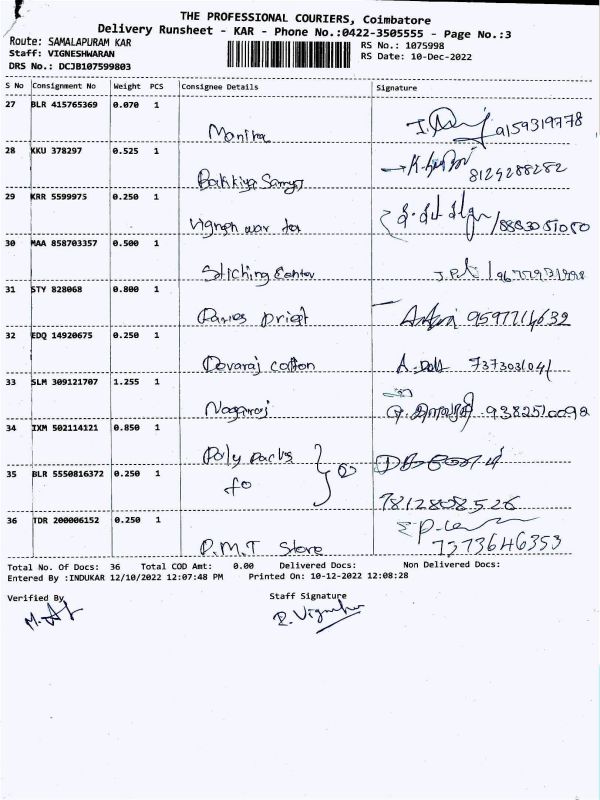 THE PROFESSIONAL COURIERS, Coimbatore
Delivery Runsheet - KAR - Phone No.:0422-3505555 - Page No.:3
Route: SAMALAPURAM KAR
RS No.: 1075998
Staff: VIGNESHWARAN
RS Date: 10-Dec-2022
DRS No.: DCJB107599803
S No Consignment No Weight PCS Consignee Details Signature
27 BLR 415765369 0.070 1
Monika 9159319778
28 KKU 378297 0.525 1
8124288282
29 KRR 5599975 0.250 1
30 MAA 858703357 0.500 1
Stiching Center
31 STY 828068 0.800 1
9597714632
32 EDQ 14920675 0.250 1
Devaraj cotton 737303104/
33 SLM 309121707 1.255 1
Nagaraj 9382510092
34 IXM 502114121 0.850 1
Poly packs
35 BLR 5550816372 0.250 1
7812808526
36 TDR 200006152 0.250 1
P.M.T Store 7373646353
Total No. Of Docs: 36 Total COD Amt: 0.00 Delivered Docs: Non Delivered Docs:
Entered By :INDUKAR 12/10/2022 12:07:48 PM Printed On: 10-12-2022 12:08:28
Verified By Staff Signature